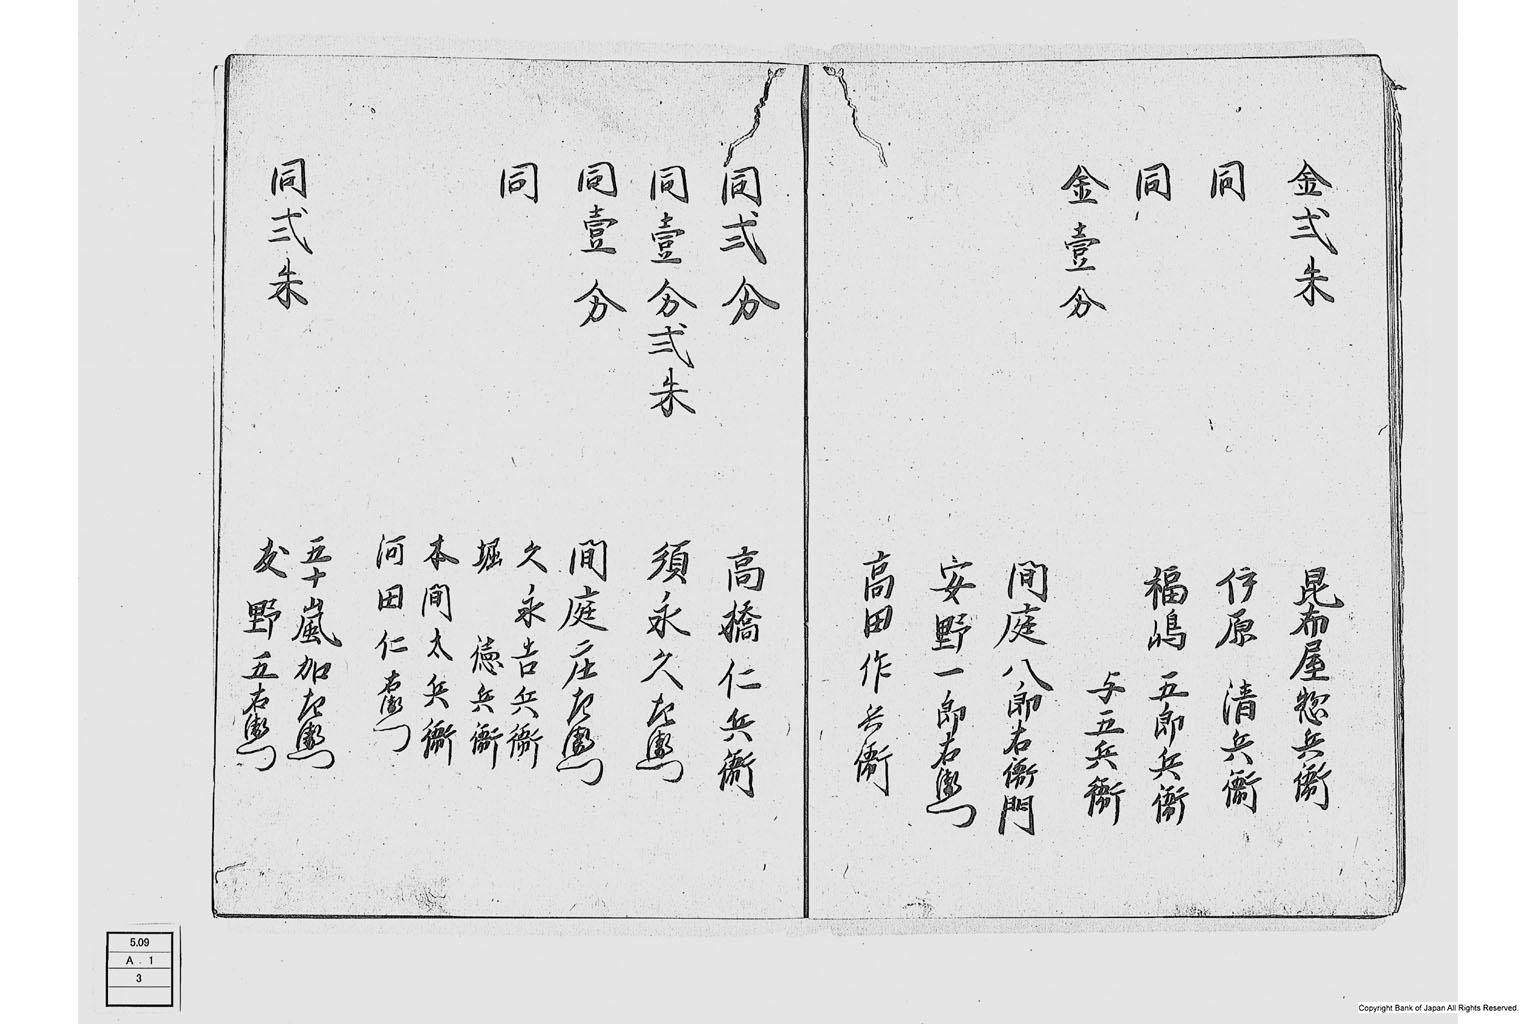 金弐朱 昆布屋惣兵衛
同 伊原清兵衛
同 福嶋五郎兵衛
与五兵衛
金壹分
間庭八郎右衛門
安野一郎右衛門
高田作兵衛
同弐分 高橋仁兵衛
同壹分弐朱 須永久左衛門
同壹分 間庭庄左衛門
同 久永吉兵衛
堀 徳兵衛
本間太兵衛
河田仁右衛門
同弐朱 五十嵐加左衛門
野五右衛門
5.09
A . 1
3
Copyright Bank of Japan All Rights Reserved.